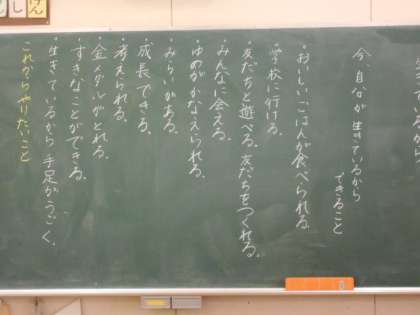 今、自分が生きているから
できること
・おいしいごはんが食べられる。
・学校に行ける。
・友だちと遊べる。友だちをつくれる。
・みんなに会える。
・ゆめがかなえられる。
・みらいがある。
・成長できる。
・考えられる。
・金メダルがとれる。
・すきなことができる。
・生きているから手足がうごく。
これからやりたいこと